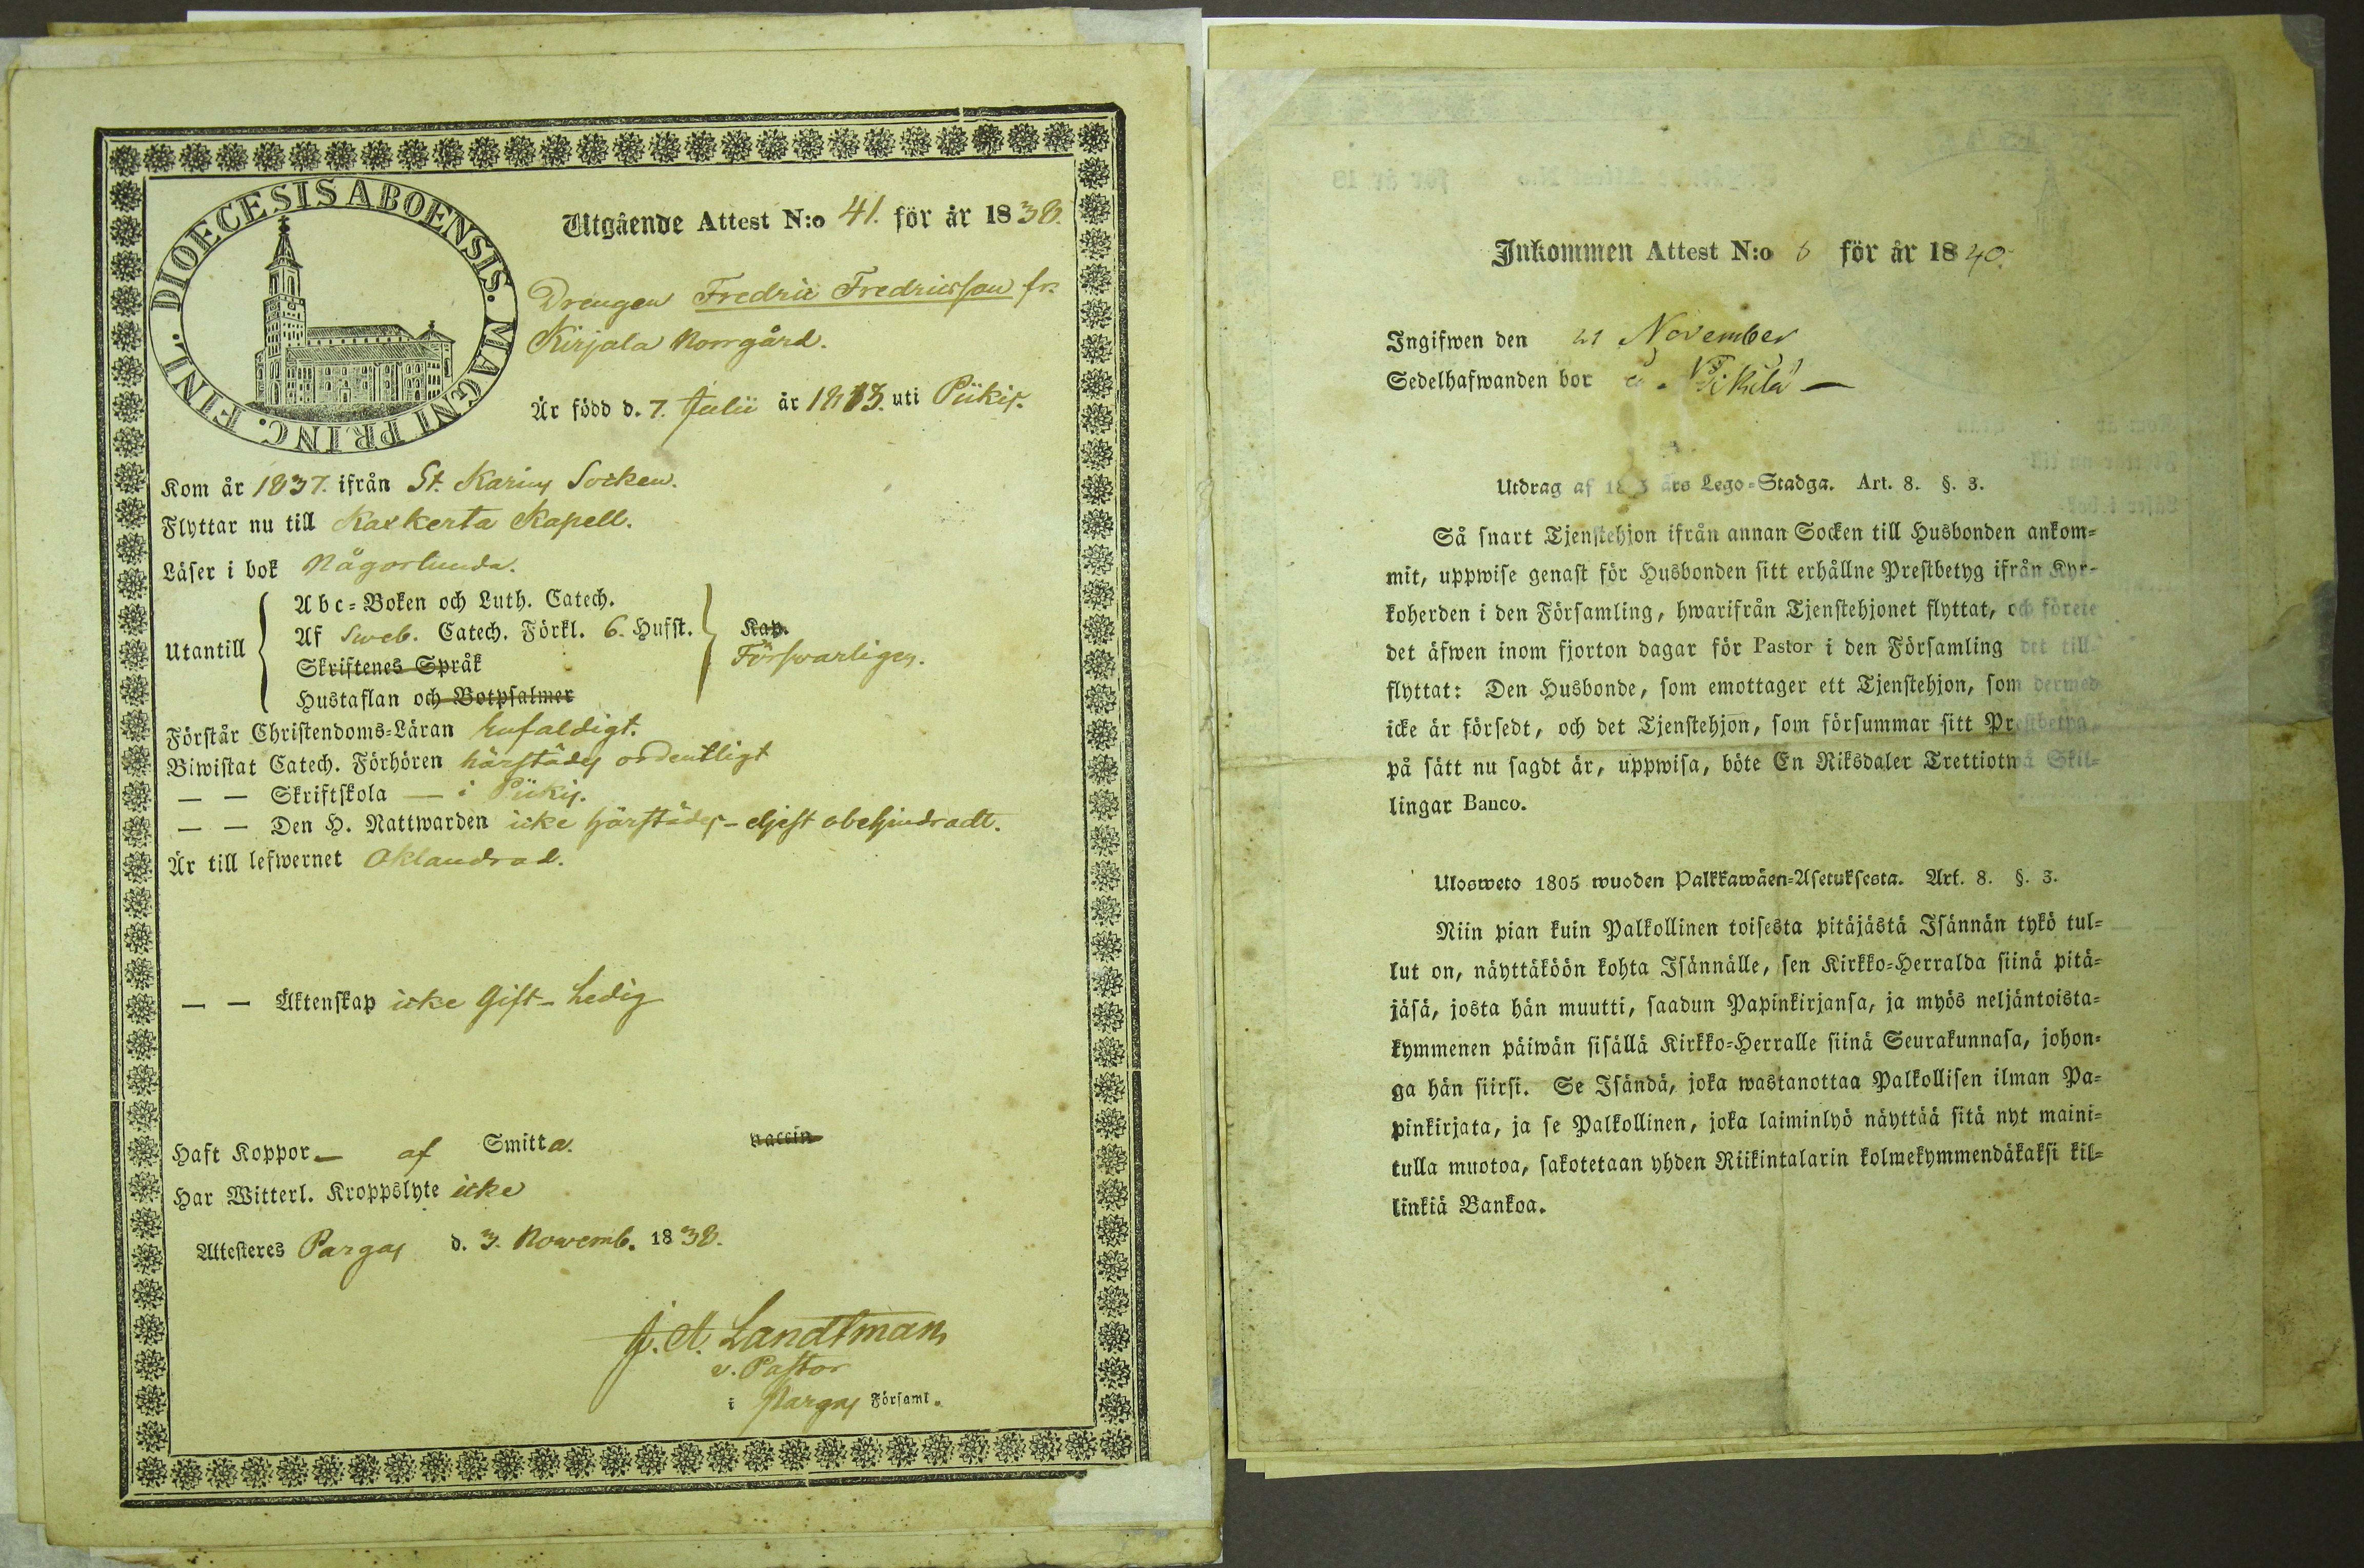 DIOECESIS ABOENSIS. MAGNI PRINC. FINL.
Utgående Attest N:o 41. för år 1838.
Drengen Fredric Fredricsson fr.
Kirjala Norrgård.
Är född d. 7. Julii år 1813. uti Pikis.
Kom år 1837. ifrån St. Karins Socken.
Flyttar nu till Kaxkerta Kapell.
Läser i bok Någorlunda.
Utantill
Abc-Boken och Luth. Catech.
Af Sweb. Catech. Förkl. 6. Hufst.
Skriftenes Språk
Hustaflan och Botpsalmer
Kap.
Förswarligen.
Förstår Christendoms-Läran Enfaldigt.
Biwistat Catech. Förhören härstädes ordentligt
— — Skriftskola — i Pikis.
— — Den H. Nattwarden icke härstädes - eljest obehindradt.
Är till lefwernet Oklandrad.
— — Äktenskap icke Gift - Ledig
Haft Koppor — af Smitta. vaccin
Har Witterl. Kroppslyte icke
Attesteres Pargas d. 3. Novemb. 1838.
J. A. Landtman
v. Pastor
i Pargas Församl.
Inkommen Attest N:o 6 för år 1840.
Ingifwen den 21 November
Sedelhafwanden bor
Utdrag af års Lego-Stadga. Art. 8. §. 3.
Så snart Tjenstehjon ifrån annan Socken till Husbonden ankom-
mit, uppwise genast för Husbonden sitt erhållne Prestbetyg ifrån Kyr-
koherden i den Församling, hwarifrån Tjenstehjonet flyttat, och föreie
det äfwen inom fjorton dagar för Pastor i den Församling det till-
flyttat: Den Husbonde, som emottager ett Tjenstehjon, som dermed
icke är försedt, och det Tjenstehjon, som försummar sitt Prestbetyg,
på sätt nu sagdt är, uppwisa, böte En Riksdaler Trettiotwå Skil-
lingar Banco.
Ulosweto 1805 wuoden Palkkawäen-Asetuksesta. Art. 8. §. 3.
Niin pian kuin Palkollinen toisesta pitäjästä Isännän tykö tul-
lut on, näyttäköön kohta Isännälle, sen Kirkko-Herralda siinä pitä-
jäsä, josta hän muutti, saadun Papinkirjansa, ja myös neljäntoista-
kymmenen päiwän sisällä Kirkko-Herralle siinä Seurakunnasa, johon-
ga hän siirsi. Se Isändä, joka wastanottaa Palkollisen ilman Pa-
pinkirjata, ja se Palkollinen, joka laiminlyö näyttää sitä nyt maini-
tulla muotoa, sakotetaan yhden Riikintalarin kolmekymmendäkaksi kil-
linkiä Bankoa.